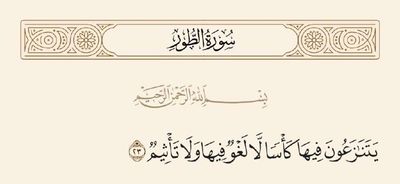 سُورَةُ الطُّورِ
بِسْمِ اللَّهِ الرَّحْمَٰنِ الرَّحِيمِ
يَتَنَٰزَعُونَ فِيهَا كَأْسًا لَّا لَغْوٌ فِيهَا وَلَا تَأْثِيمٌ ٢٣